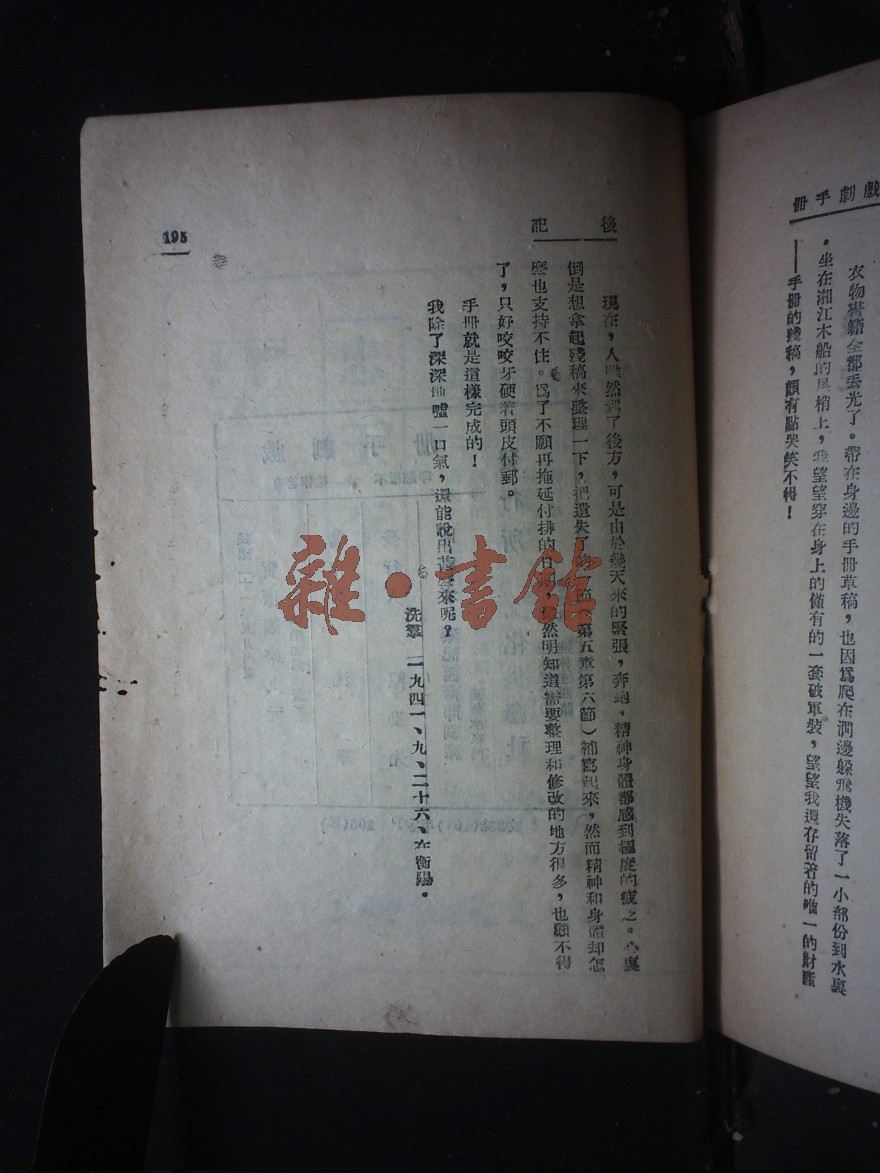 戲劇手冊
衣物書籍全都丟光了。帶在身邊的手冊草稿,也因爲爬在澗邊躲飛機失落了一小部份到水裏
。坐在湘江木船的尾梢上,我望望穿在身上的僅有的一套破軍裝,望望我還存留著的唯一的財產
——手冊的殘稿,頗有點哭笑不得!
後記
現在,人雖然到了後方,可是由於幾天來的緊張,奔跑,精神身體都感到極度的疲乏。心裏
倒是想拿起殘稿來整理一下,把遺失了的一節(第五章第六節)補寫起來,然而精神和身體却怎
麼也支持不住。爲了不願再拖延付排的日 然明知道需要整理和修改的地方很多,也顧不得
了,只好咬咬牙硬着頭皮付郵。
手冊就是這樣完成的!
我除了深深的噓一口氣,還能說出甚麼來呢?
洗羣 一九四一、九、二十六、在衡陽。
195
雜·書館